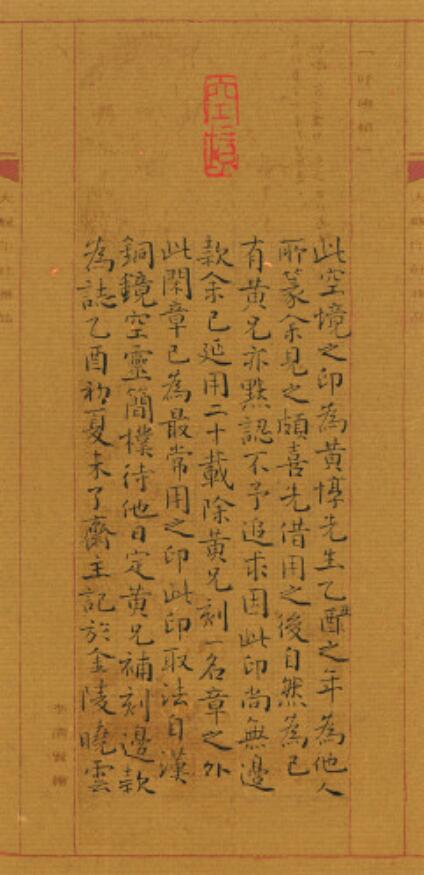 空境
此空境之印為黃惇先生乙酉丑之年為他人
所篆余見之頗喜先借用之後自然為己
有黃兄亦默認不予追求因此印尚無邊
款余已延用二十載除黃兄刻一名章之外
此閑章已為最常用之印此印取法自漢
銅鏡空靈簡樸待他日定黃兄補刻邊款
為誌乙酉初夏未了齋主記於金陵曉雲